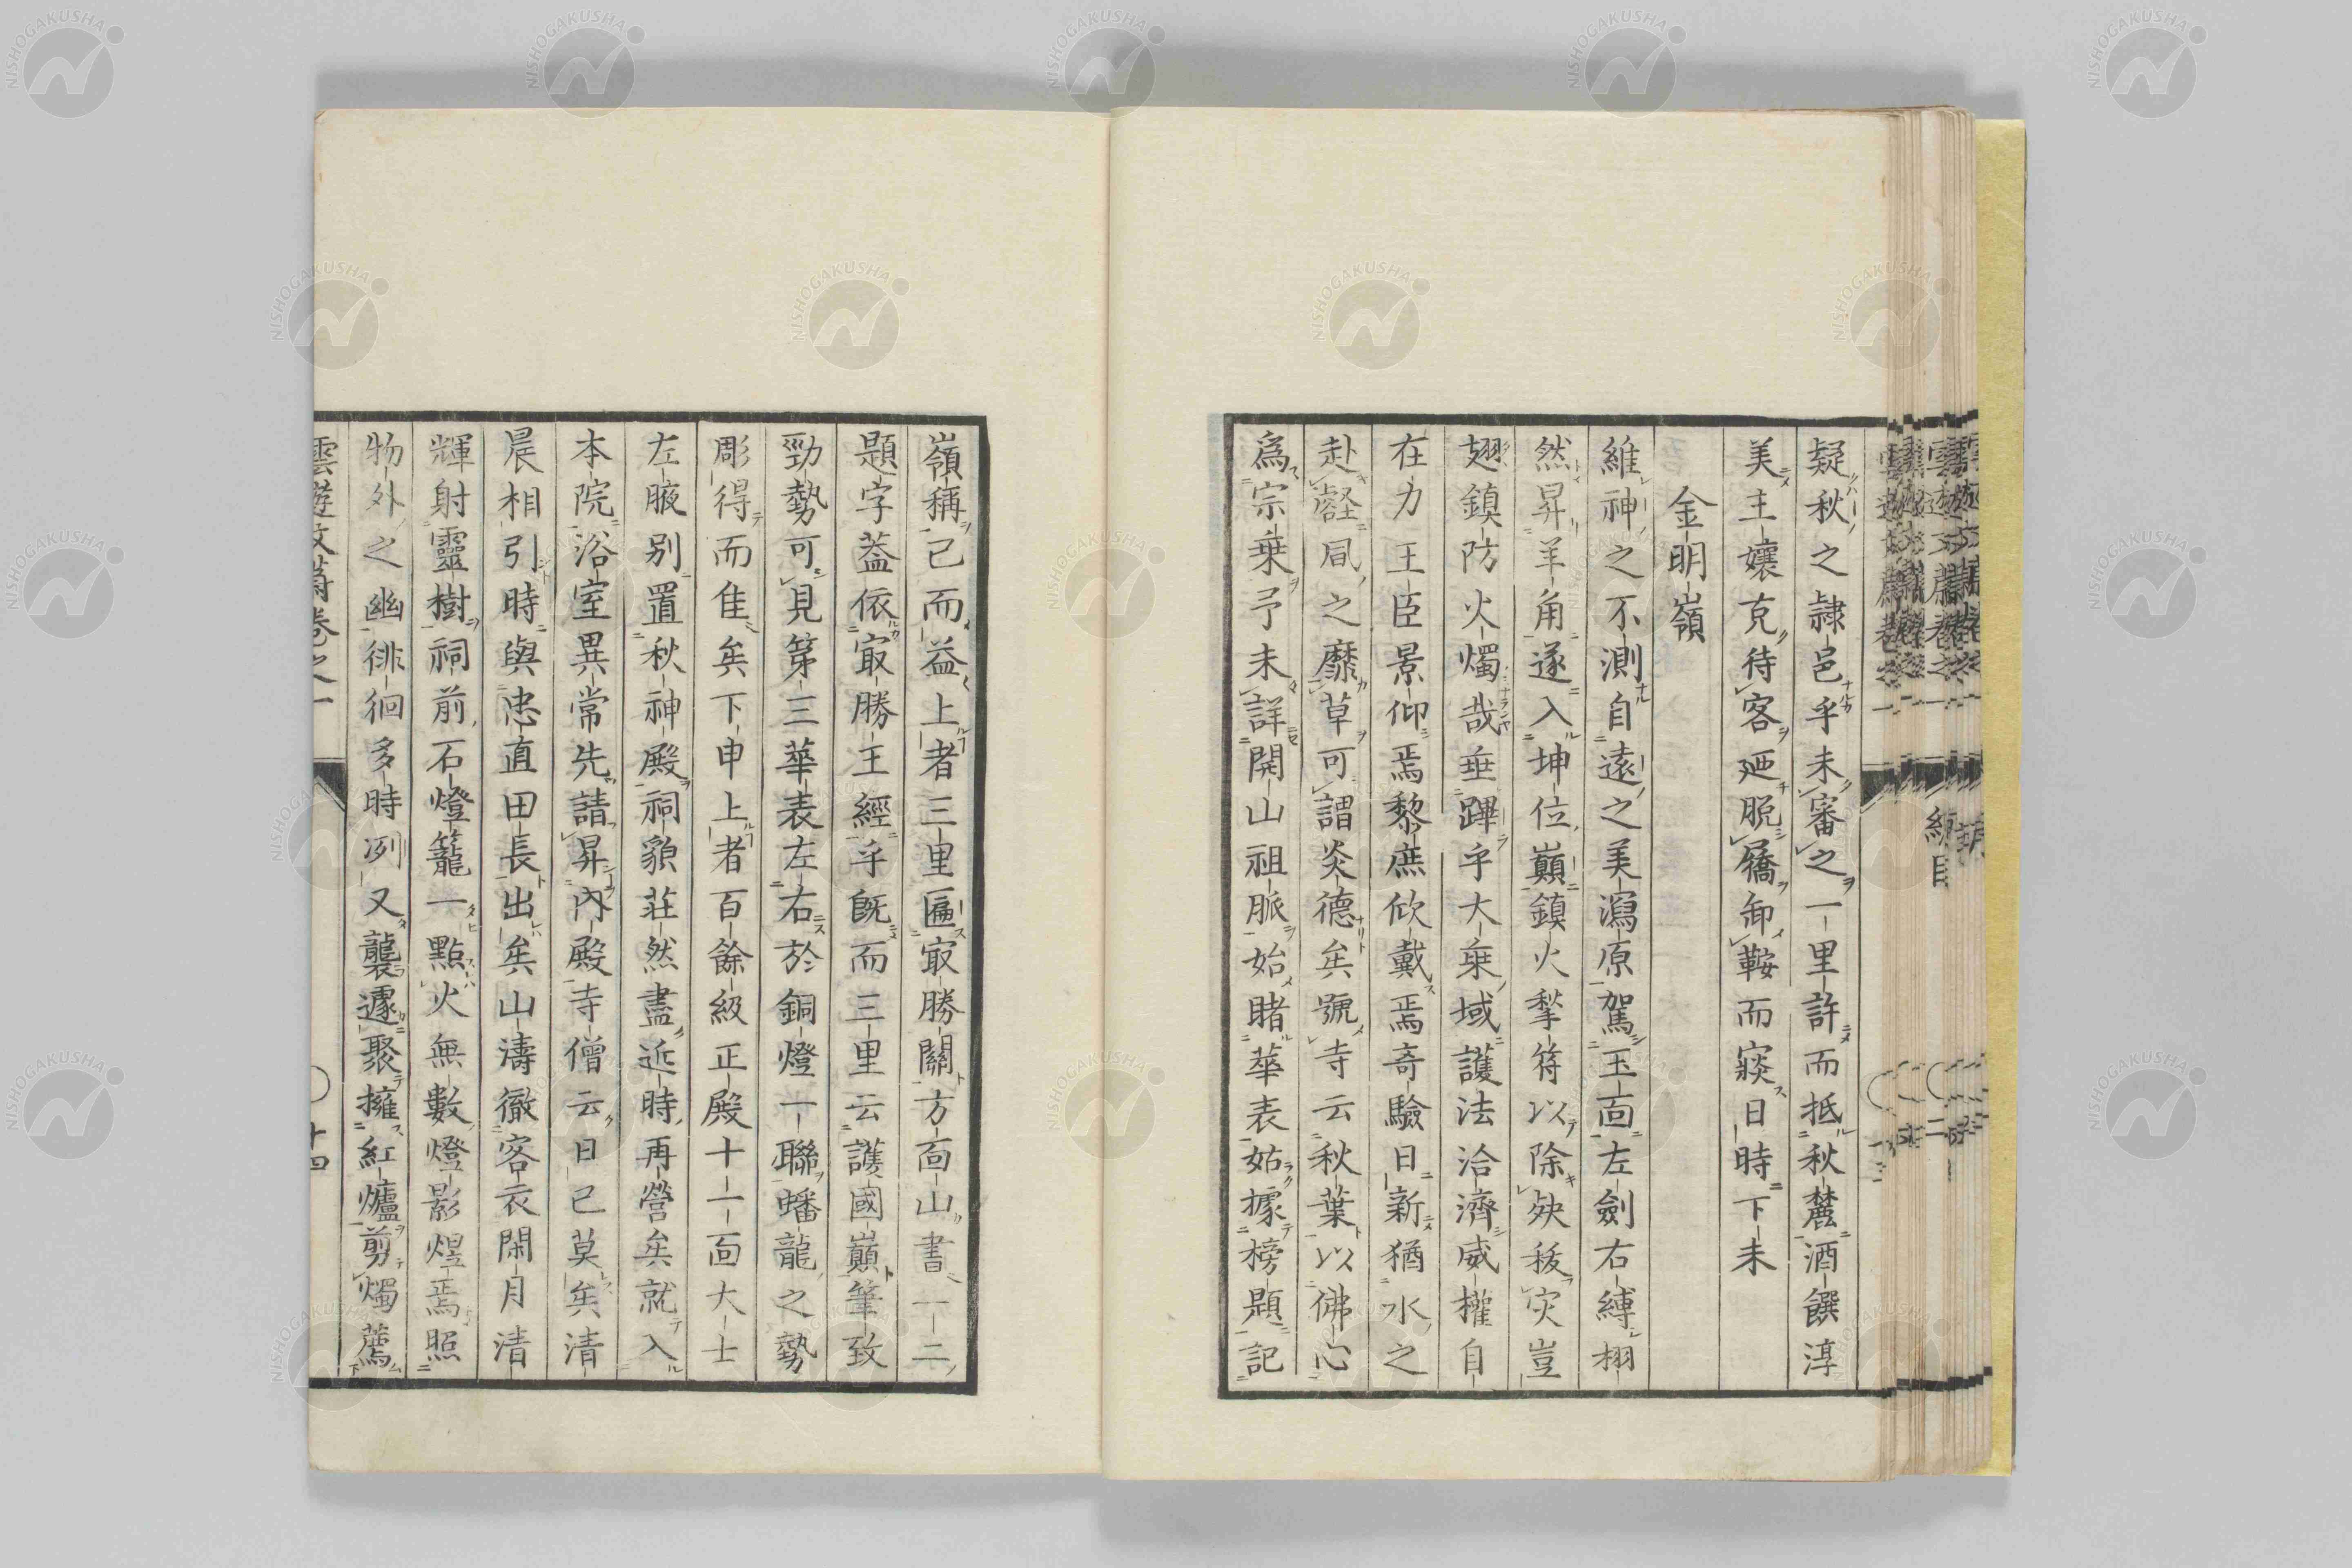 疑秋之隷邑乎未審之一里許而抵秋麓酒饌淳
美主孃克待客廼脱屩卸鞍而寢日時下未
金明嶺
維神之不測自遠之美瀉原駕玉面左劍右縛栩
然昇羊角遂入坤位巔鎮火揫符以除殃秡灾豈
翅鎮防火燭哉垂蹕乎大乗域護法洽濟威權自
在力王臣景仰焉黎庶欣戴焉奇驗日新猶水之
赴壑凮之靡草可謂炎德矣號寺云秋葉以佛心
爲宗乗予未詳開山祖脈始睹華表姑據榜題記
嶺稱已而益上者三里匾㝡勝關方面山書一二
題字葢依㝡勝王經乎既而三里云護國巔筆致
勁勢可見第三華表左右於銅燈一聯蟠龍之勢
彫得而隹矣下申上者百餘級正殿十一面大士
左腋别置秋神殿祠貌莊然盡近時再營矣就入
本院浴室異常先請昇内殿寺僧云日已莫矣清
晨相引時與忠直田長出矣山濤徹客衣閑月清
輝射靈樹祠前石燈籠一點火無數燈影焜焉照
物外之幽徘徊多時冽又襲遽聚擁紅爐剪燭薦
雲遊文蔚卷之一 〇十四
NISHOGAKUSHA